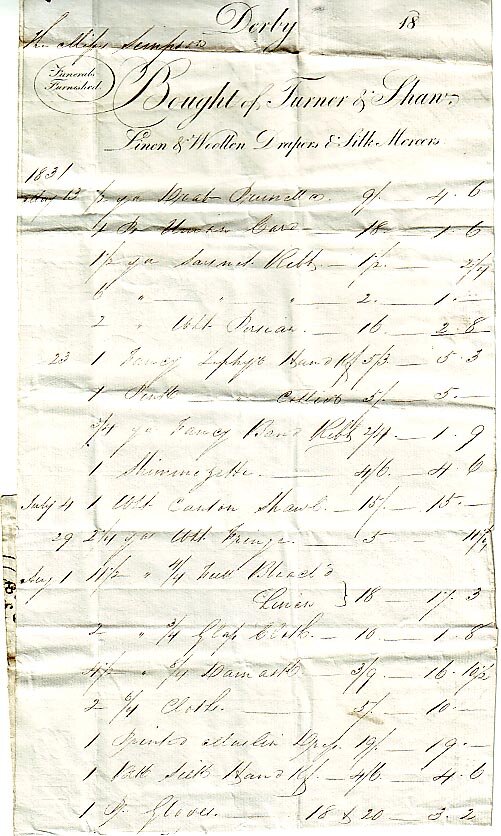 Derby 18
Miss Simpson
Funerals
Furnished
Bought of Turner & Shaw,
Linen & Woollen Drapers & Silk Mercers
1831
May 13 1/2 yd Drab Prunella 9/- 4 . 6
4 Union Cord 18 1 . 6
1 1/2 yd Sarsnet Ribb 1/2
6 " " " 2 1 . -
2 " Wht Persian 16 2 . 8
23 1 Fancy Zephyr Hand Kf 5/3 5 . 3
1 " 5/- 5 . -
3/4 yd Fancy Band Ribb 2/4 1 . 9
1 4/6 4 . 6
July 4 1 Wht Canton Shawl 15/- 15 . -
29 2 1/4 yds Wht Fringe 5 11 1/4
Aug 1 11 1/2 " 4/4 Bleach'd
Linen } 18 17 . 3
2 " 3/4 Glass Cloth 10 1 . 8
4 1/2 " Damask 3/9 16 . 10 1/2
2 Cloths 5/- 10 . -
1 Printed Muslin Dress 19/- 19 . -
1 Silk Hand Kf 4/6 4 . 6
1 Pr Gloves 18 & 20 3 . 2